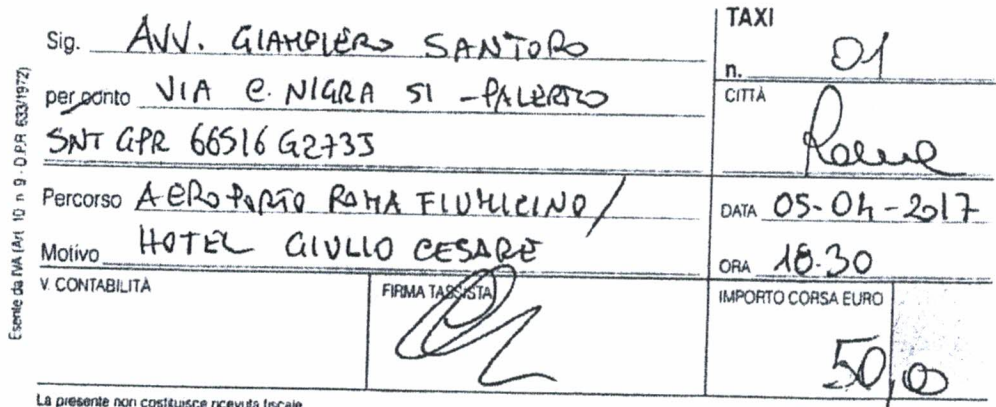 Esente da IVA (Art. 10 n. 9 - D.P.R. 633/1972)
Sig. AVV. GIAMPIERO SANTORO
per conto VIA C. NIGRA 51 - PALERMO
SNT GPR 66S16 G273J
Percorso AEROPORTO ROMA FIUMICINO/
Motivo HOTEL GIULIO CESARE
TAXI
n. 01
CITTÀ
Roma
DATA 05-04-2017
ORA 18.30
V. CONTABILITÀ
FIRMA TASSISTA
IMPORTO CORSA EURO
50,00
La presente non costituisce ricevuta fiscale